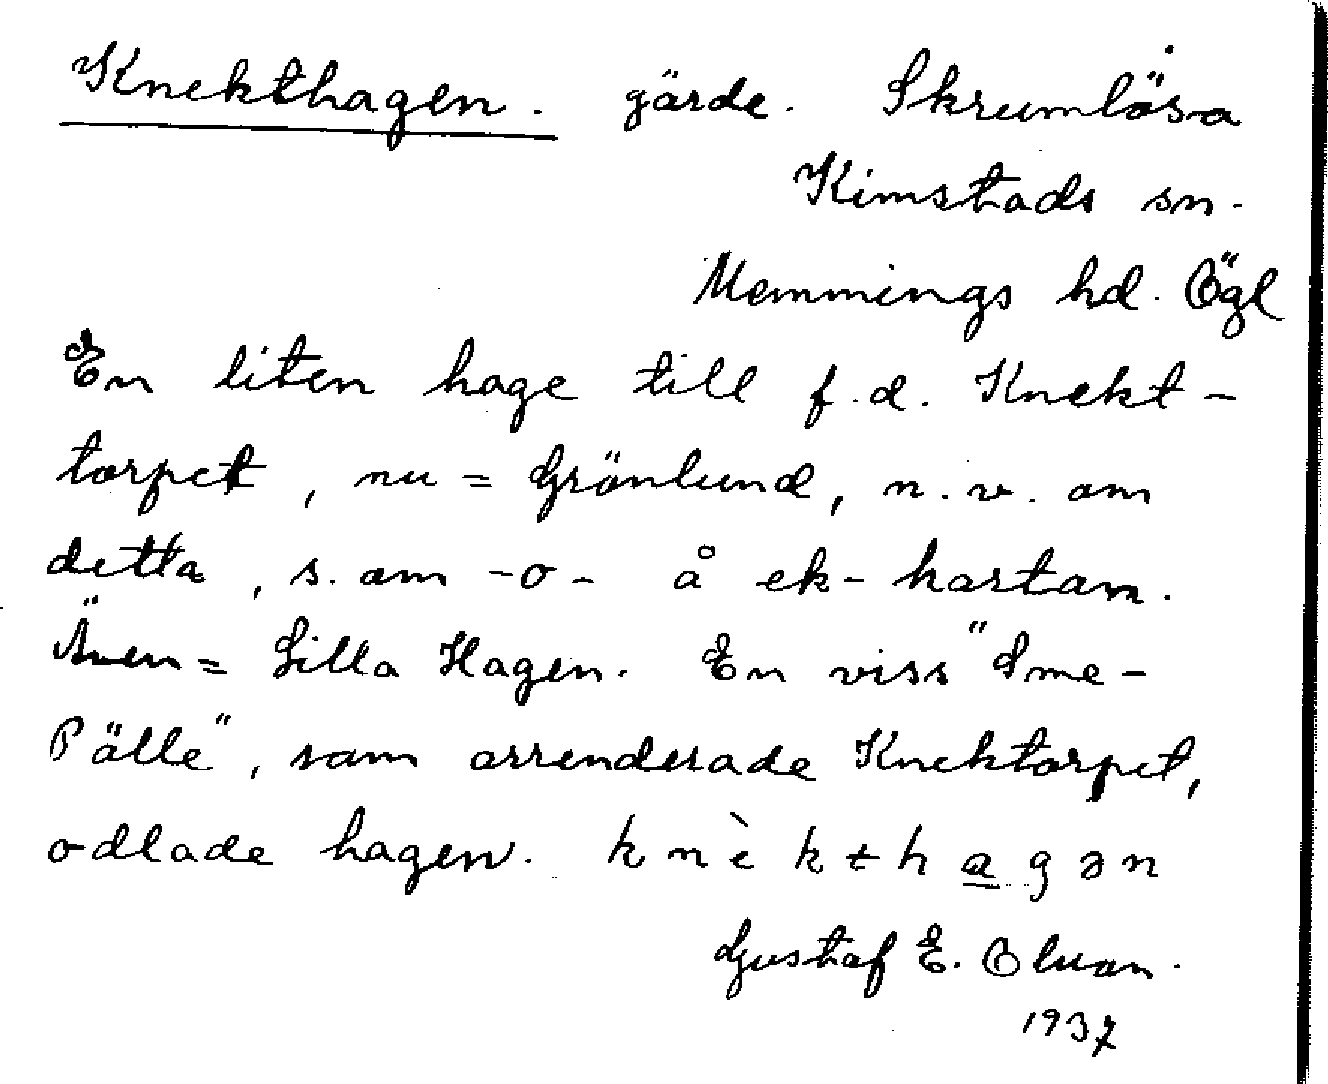 Knekthagen. gärde. Skrumlösa
Kimstads sn.
Memmings hd. Ögl
En liten hage till f.d. Knekt-
torpet, nu = Grönlund, n.v. om
detta, s. om -o- å ek-kartan.
Även = Lilla Hagen. En viss "Sme-
Pälle", som arrenderade Knektorpet,
odlade hagen. k n ὲ k t h a g ə n
Gustaf E.
1937